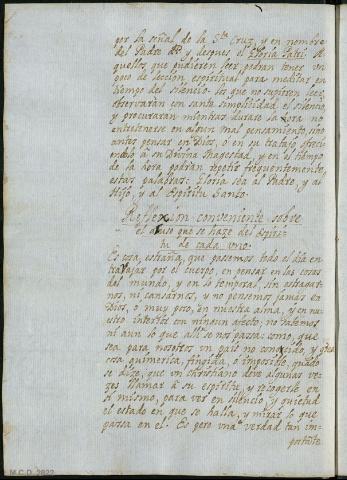 por la señal de la S.ta Cruz, y en nombre
del Padre &.a y despues el Gloria Patri. A
quellos, que pudieren leer podran tener un
poco de leccion espiritual para meditar en
tiempo del silencio. los que no supieren leer,
observaràn con santa simplicidad el silencio,
y procuraran mientras durare la hora no
entretenerse en algun mal pensamiento, sino
antes pensar en Dios, o en su trabajo ofrecie-
endolo à su Divina Magestad, y en el tiempo
de la hora podràn repetir frequentemente,
estas palabras: Gloria sea al Padre, y al
Hijo, y al Espiritu Santo.
Reflexion conveniente sobre
el abuso que se haze del espiri-
tu de cada uno.
Es cosa, estraña, que pasemos todo el dia en
trabajar por el cuerpo, en pensar en las cosas
del mundo, y en lo temporal, sin estragar-
nos, ni cansarnos, y no pensemos jamàs en
Dios, o muy poco, en nuestra alma, y en nu-
estro interior con ningun afecto; no sabemos
ni aun lo que alli se nos passa: como, que
sea para nosotros un pais no conocido, y una
cosa quimerica, fingida, o imposible, quando
se dize, que un christiano deve algunas ve-
zes llamar à su espiritu, y recogerle en
si mismo, para ver en silencio, y quietud
el estado en que se halla, y mirar lo que
passa en el. Es pero una verdad tan im-
portante
M.C.D. 2822